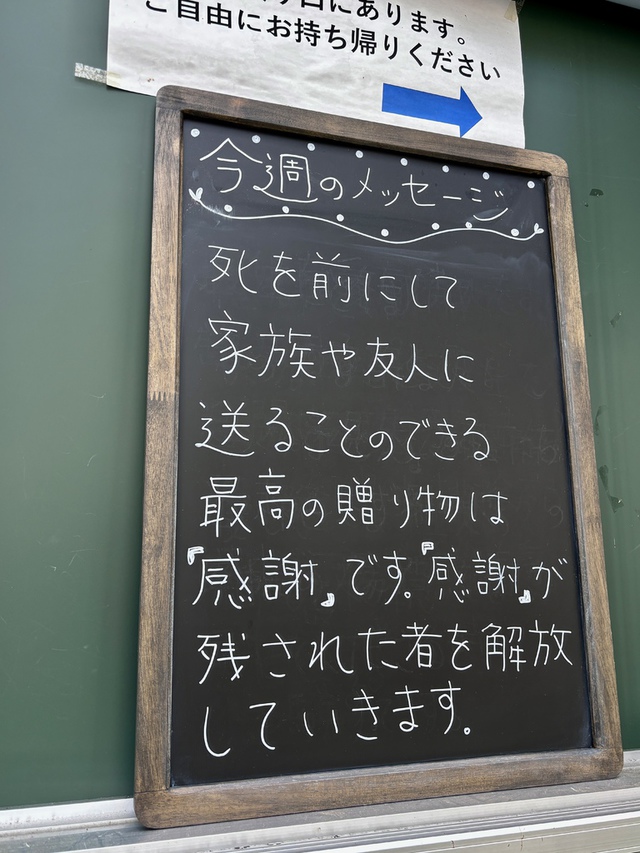 口にあります。
ご自由にお持ち帰りください
今週のメッセージ
死を前にして
家族や友人に
送ることのできる
最高の贈り物は
『感謝』です。『感謝』が
残された者を解放
していきます。